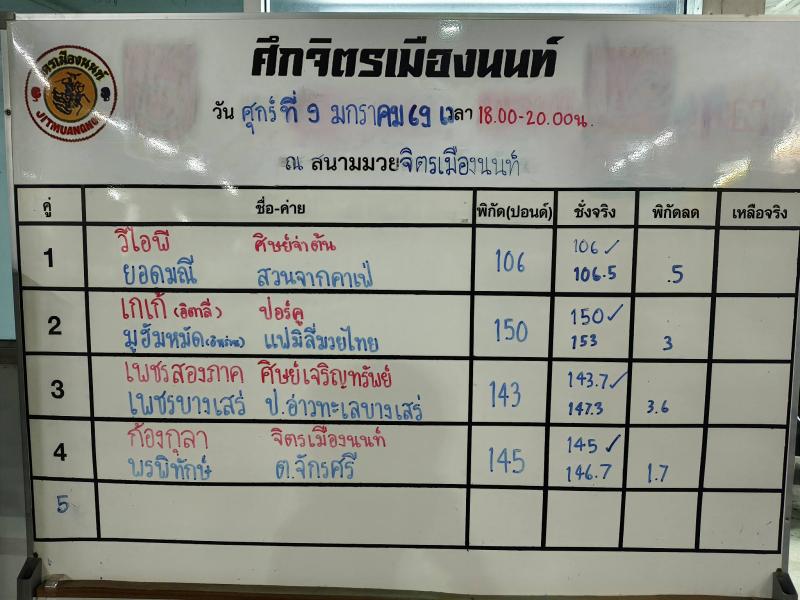 จิตรเมืองนนท์
JITMUANGNON
ศึกจิตรเมืองนนท์
วัน ศุกร์ ที่ 9 มกราคม 69 เวลา 18.00-20.00น.
ณ สนามมวยจิตรเมืองนนท์
คู่ ชื่อ-ค่าย พิกัด(ปอนด์) ชั่งจริง พิกัดลด เหลือจริง
1 วีไอพี ศิษย์จ่าต้น 106 106 ✓
ยอดมณี สวนจากคาเฟ่ 106.5 .5
2 เกเก้ (อิตาลี่) ปอร์คู 150 150 ✓
มูฮัมหมัด แฟมิลี่มวยไทย 153 3
3 เพชรสองภาค ศิษย์เจริญทรัพย์ 143 143.7 ✓
เพชรบางเสร่ ป.อ่าวทะเลบางเสร่ 147.3 3.6
4 ก้องกุลา จิตรเมืองนนท์ 145 145 ✓
พรพิทักษ์ ต.จักรศรี 146.7 1.7
5